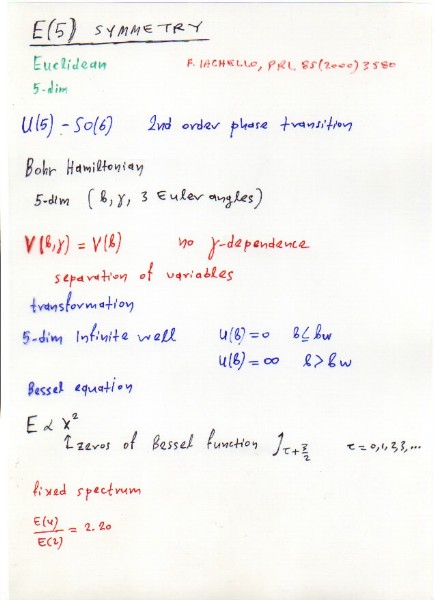 E(5) SYMMETRY
Euclidean
F. IACHELLO, PRL 85(2000) 3580
5-dim
U(5) - SO(6) 2nd order phase transition
Bohr Hamiltonian
5-dim (β, γ, 3 Euler angles)
V(β,γ) = V(β) no γ-dependence
separation of variables
transformation
5-dim Infinite well U(β)=0 β≤βw
U(β)=∞ β>βw
Bessel equation
E ∝ x²
↑ zeros of Bessel function J τ+3/2 τ=0,1,2,3,...
fixed spectrum
E(4)/E(2) = 2.20